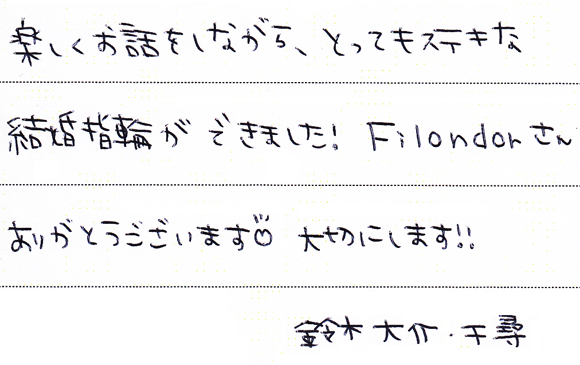 楽しくお話をしながら、とってもステキな
結婚指輪ができました! Filondorさん
ありがとうございます♡ 大切にします!!
鈴木 大介・千尋